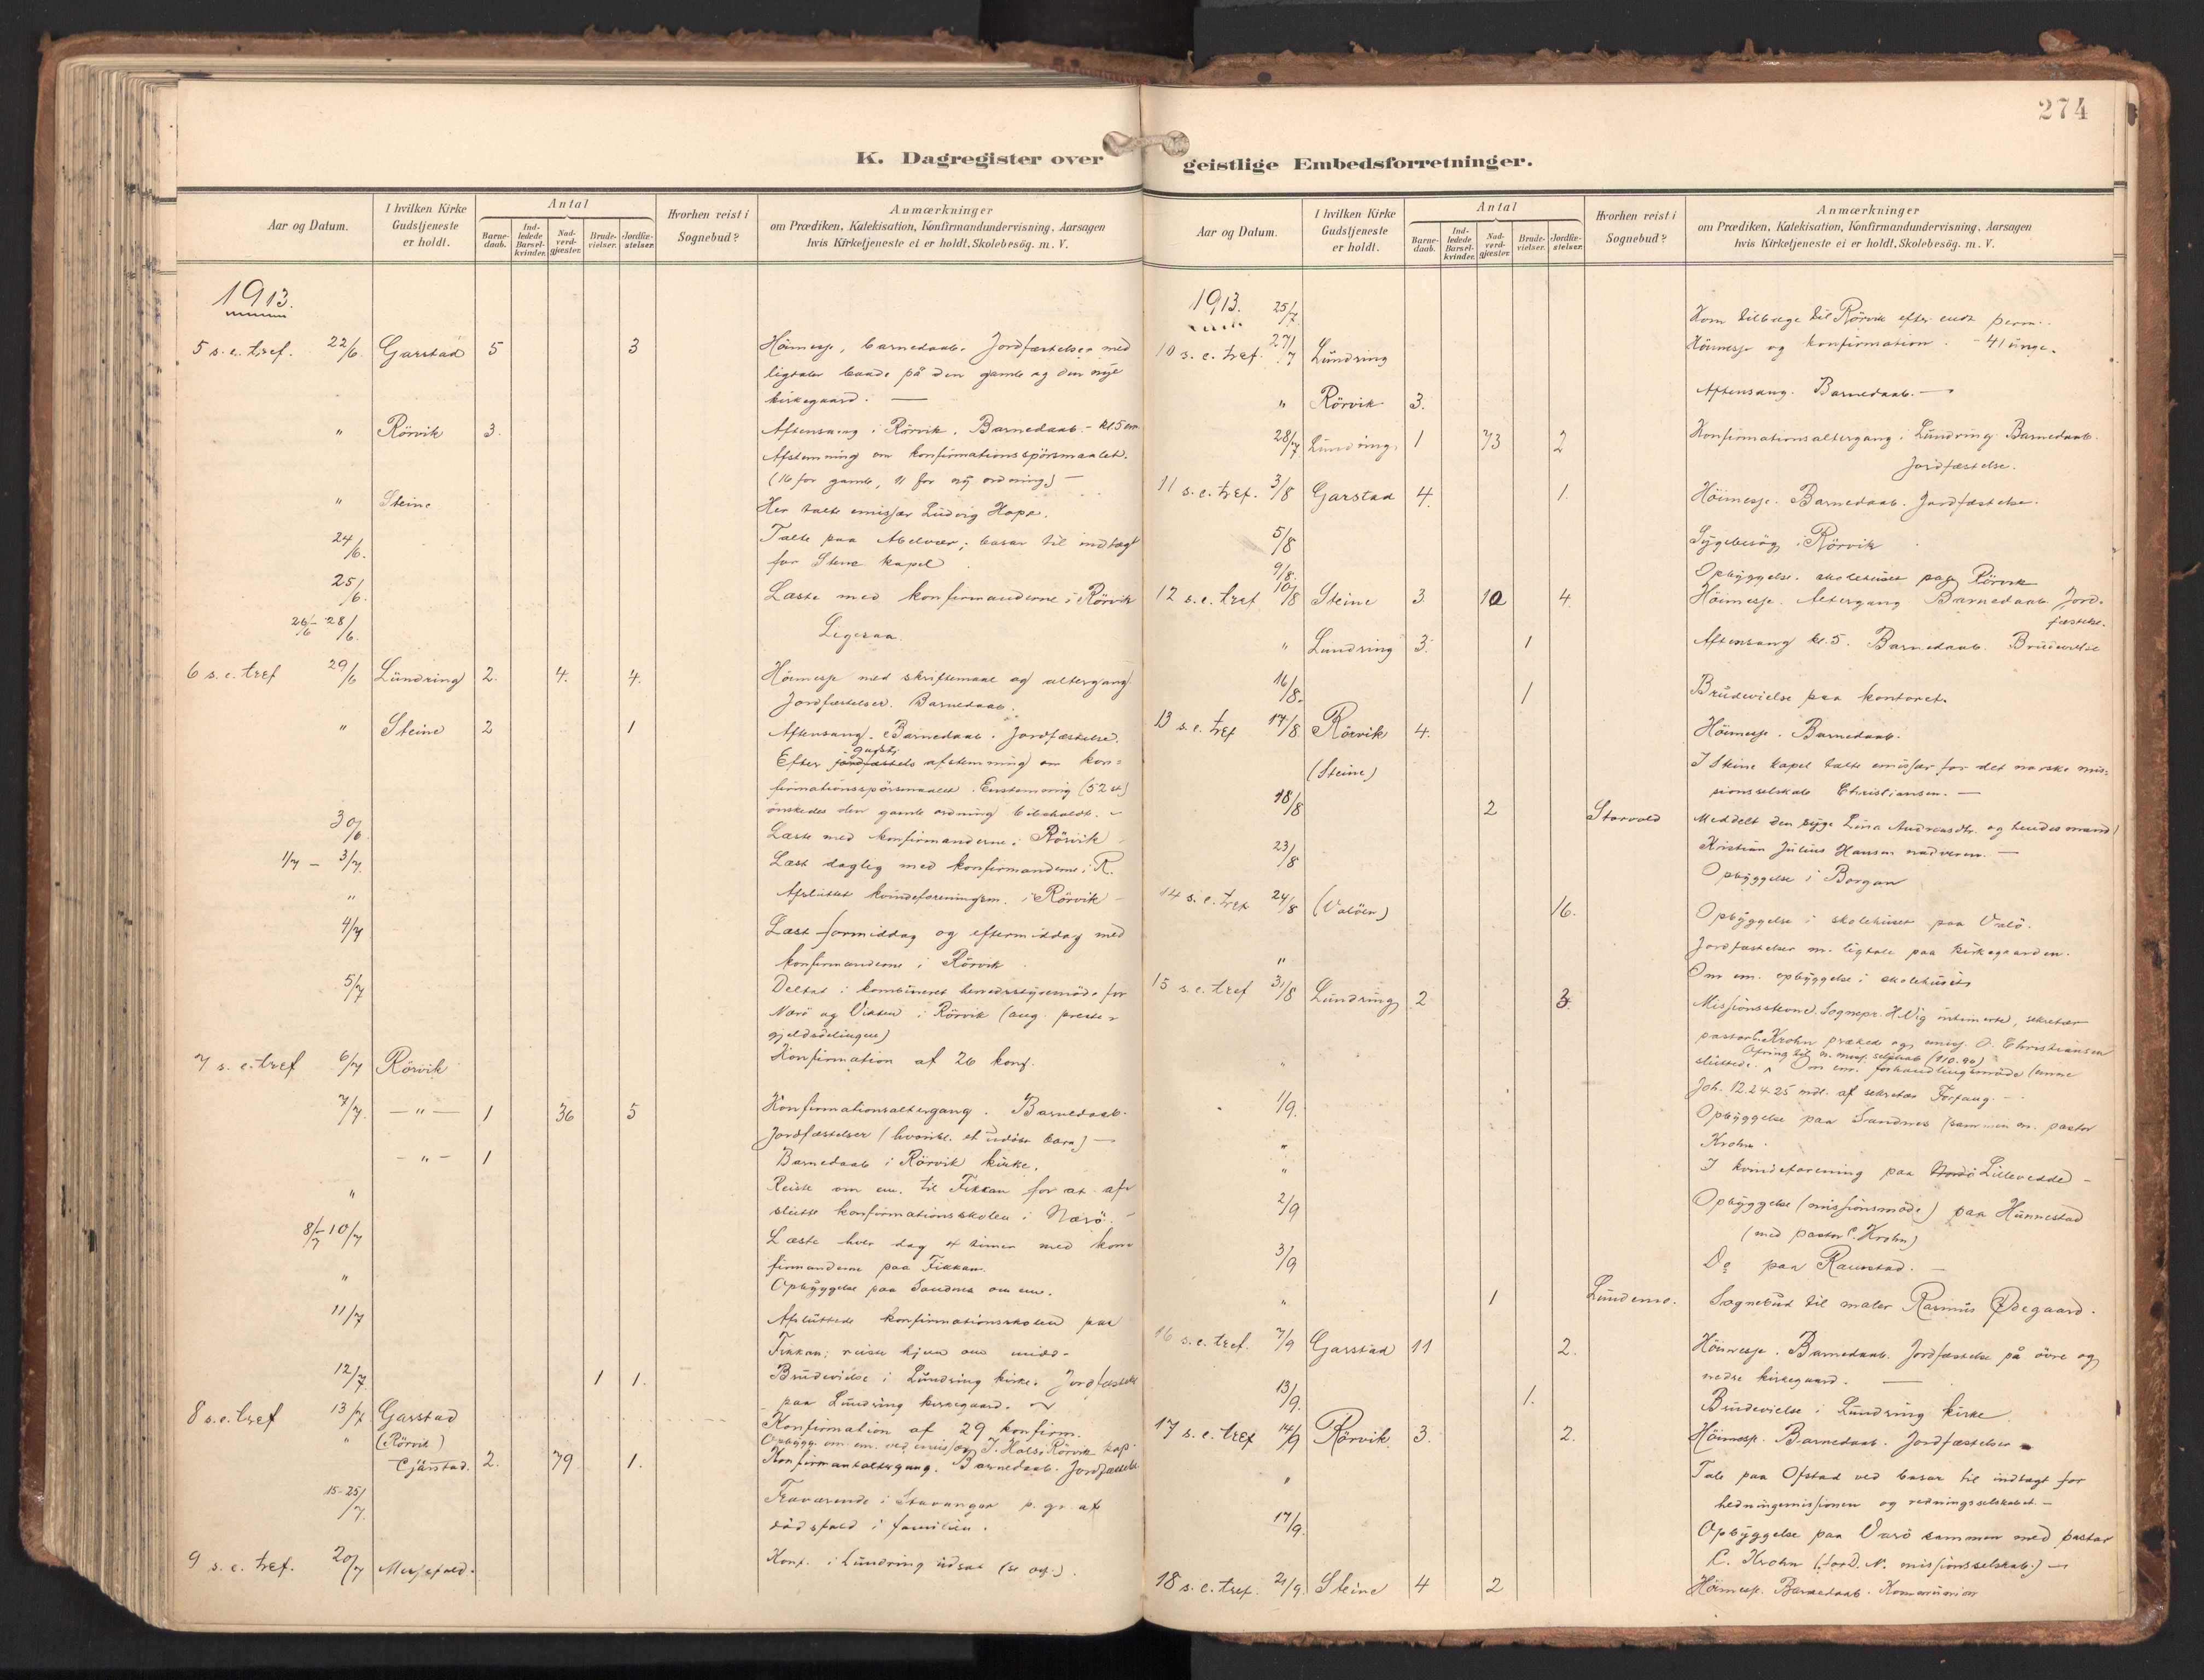 274
K. Dagregister over geistlige Embedsforretninger.
Aar og Datum.
I hvilken Kirke Gudstjeneste er holdt.
Antal
Barne-daab.
Ind-ledede Barsel-kvinder.
Nad-verd-gjæster.
Brude-vielser.
Jordfæ-stelser.
Hvorhen reist i Sognebud?
Anmærkninger
om Prædiken, Katekisation, Konfirmandundervisning, Aarsagen
hvis Kirketjeneste ei er holdt, Skolebesøg. m. V.
1913.
5 s. e. tref. 22/6. Garstad 5 3 Höimesse, barnedaab. Jordfæstelser med
ligtaler baade på den gamle og den nye
kirkegaard. —
" Rörvik 3. Aftensang i Rörvik. Barnedaab. - kl. 5 em.
Afstemning om konfirmationsspörsmaalet.
(16 for gamle, 11 for ny ordning) —
" Steine Her talte emissær Ludvig Hope.
24/6. Talte paa Abelvær; basar til indtægt
for Steine kapel
25/6. Læste med konfirmanderne i Rörvik
26/6 - 28/6. Ligesaa.
6 s. e. tref 29/6 Lundring 2. 4. 4. Höimesse med skriftemaal og altergang.
Jordfæstelser. Barnedaab.
" Steine 2 1 Aftensang. Barnedaab. Jordfæstelse.
Efter gudstj. afstemning om kon-
firmationsspörsmaalet. Enstemmig (52 st)
önskedes den gamle ordning bibeholdt.
30/6 Læste med konfirmanderne i Rörvik
1/7 - 3/7. Læst daglig med konfirmanderne i R.
" Afsluttet kvindeforeningsm. i Rörvik
4/7 Læst formiddag og eftermiddag med
konfirmanderne i Rörvik
5/7 Deltat i kombineret herredsstyremöde for
Nærö og Vikten i Rörvik (ang. preste-
gjeldsdelingen)
7 s. e. tref 6/7 Rörvik Konfirmation af 26 konf.
7/7. — " — 1 36 5 Konfirmationsaltergang. Barnedaab.
Jordfæstelser (hvoribl. et udöbt barn) —
— " — 1 Barnedaab i Rörvik kirke.
" Reiste om em. til Fikkan for at af-
slutte konfirmationsskolen i Nærö.
8/7 - 10/7 Læste hver dag timer med kon-
firmanderne paa Fikkan.
" Opbyggelse paa Sandnes om em.
11/7 Afsluttede konfirmationsskolen paa
Fikkan; reiste hjem om midd-
12/7 1 1. Brudevielse i Lundring kirke. Jordfæstelse
paa Lundring kirkegaard.
8 s. e. tref 13/7 Garstad Konfirmation af 29 konfirm.
" (Rörvik) Opbygg. om em. ved emissær J. Hals i Rörvik kap.
Garstad. 2. 79 1. Konfirmantaltergang. Barnedaab. Jordfæstelse
15-25/7. Fraværende i Stavanger p. gr. af
dödsfald i familien.
9 s. e. tref. 20/7 Messefald. Konf. i Lundring udsat (se og.).
1913.
25/7. Kom tilbage til Rörvik efter endt perm..
10 s. e. tref. 27/7 Lundring Höimesse og konfirmation. - 41 unge.
" Rörvik 3. Aftensang. Barnedaab. —
28/7. Lundring 1 73 2 Konfirmationsaltergang i Lundring. Barnedaab.
Jordfæstelse.
11 s. e. tref. 3/8 Garstad 4. 1. Höimesse. Barnedaab. Jordfæstelse.
5/8 Sygebesög i Rörvik
9/8. Opbyggelse. skolehuset paa Rörvik
12 s. e. tref 10/8 Steine 3 10 4. Höimesse. Altergang Barnedaab. Jord-
fæstelse.
" Lundring 3. 1 Aftensang kl. 5. Barnedaab. Brudevielse
16/8. 1 Brudevielse paa kontoret.
13 s. e. tref 17/8 Rörvik 4. Höimesse. Barnedaab.
(Steine) I Steine kapel talte emissær for det norske mis-
sionsselskab Christiansen. —
18/8 2 Storvold Meddelt den syge Lina Andreasdtr. og hendes mand
Kristian Julius Hansen nadveren. —
23/8 Opbyggelse i Borgan
14 s. e. tref 24/8 (Valöen) 16. Opbyggelse i skolehuset paa Valö.
Jordfæstelser m. ligtale paa kirkegaarden.
" Om em. opbyggelse i skolehuset
15 s. e. tref 31/8 Lundring 2 3. Missionsstevne. Sognepr. H. Vig intimerte, sekretær
pastor C. Krohn prækede og emiss. O. Christiansen
sluttede. Ofring til n. miss. selskab (110.90)
" Om em. forhandlingsmöde (emne
Joh. 12.24-25 indl. af sekretær Fortaug. —
1/9. Opbyggelse paa Sandnes (sammen m. pastor
Krohn.
" I kvindeforening paa Lillevedde -
2/9 Opbyggelse (missionsmöde) paa Hunnestad
(med pastor C. Krohn)
3/9 Do paa Raunstad. —
" 1 Lundemo. Sognebud til maler Rasmus Ödegaard.
16 s. e. tref. 7/9 Garstad 11 2. Höimesse. Barnedaab. Jordfæstelse på övre og
nedre kirkegaard. —
13/9. 1. Brudevielse i Lundring kirke.
17 s. e. tref 14/9 Rörvik 3. 2. Höimesse. Barnedaab. Jordfæstelser
" Tale paa Ofstad ved basar til indtægt for
hedningemissionen og redningsselskabet -
17/9. Opbyggelse paa Varö sammen med pastor
C. Krohn (for D. N. missionsselskab.) —
18 s. e. tref. 21/9. Steine 4 2 Höimesse. Barnedaab. Kommunion